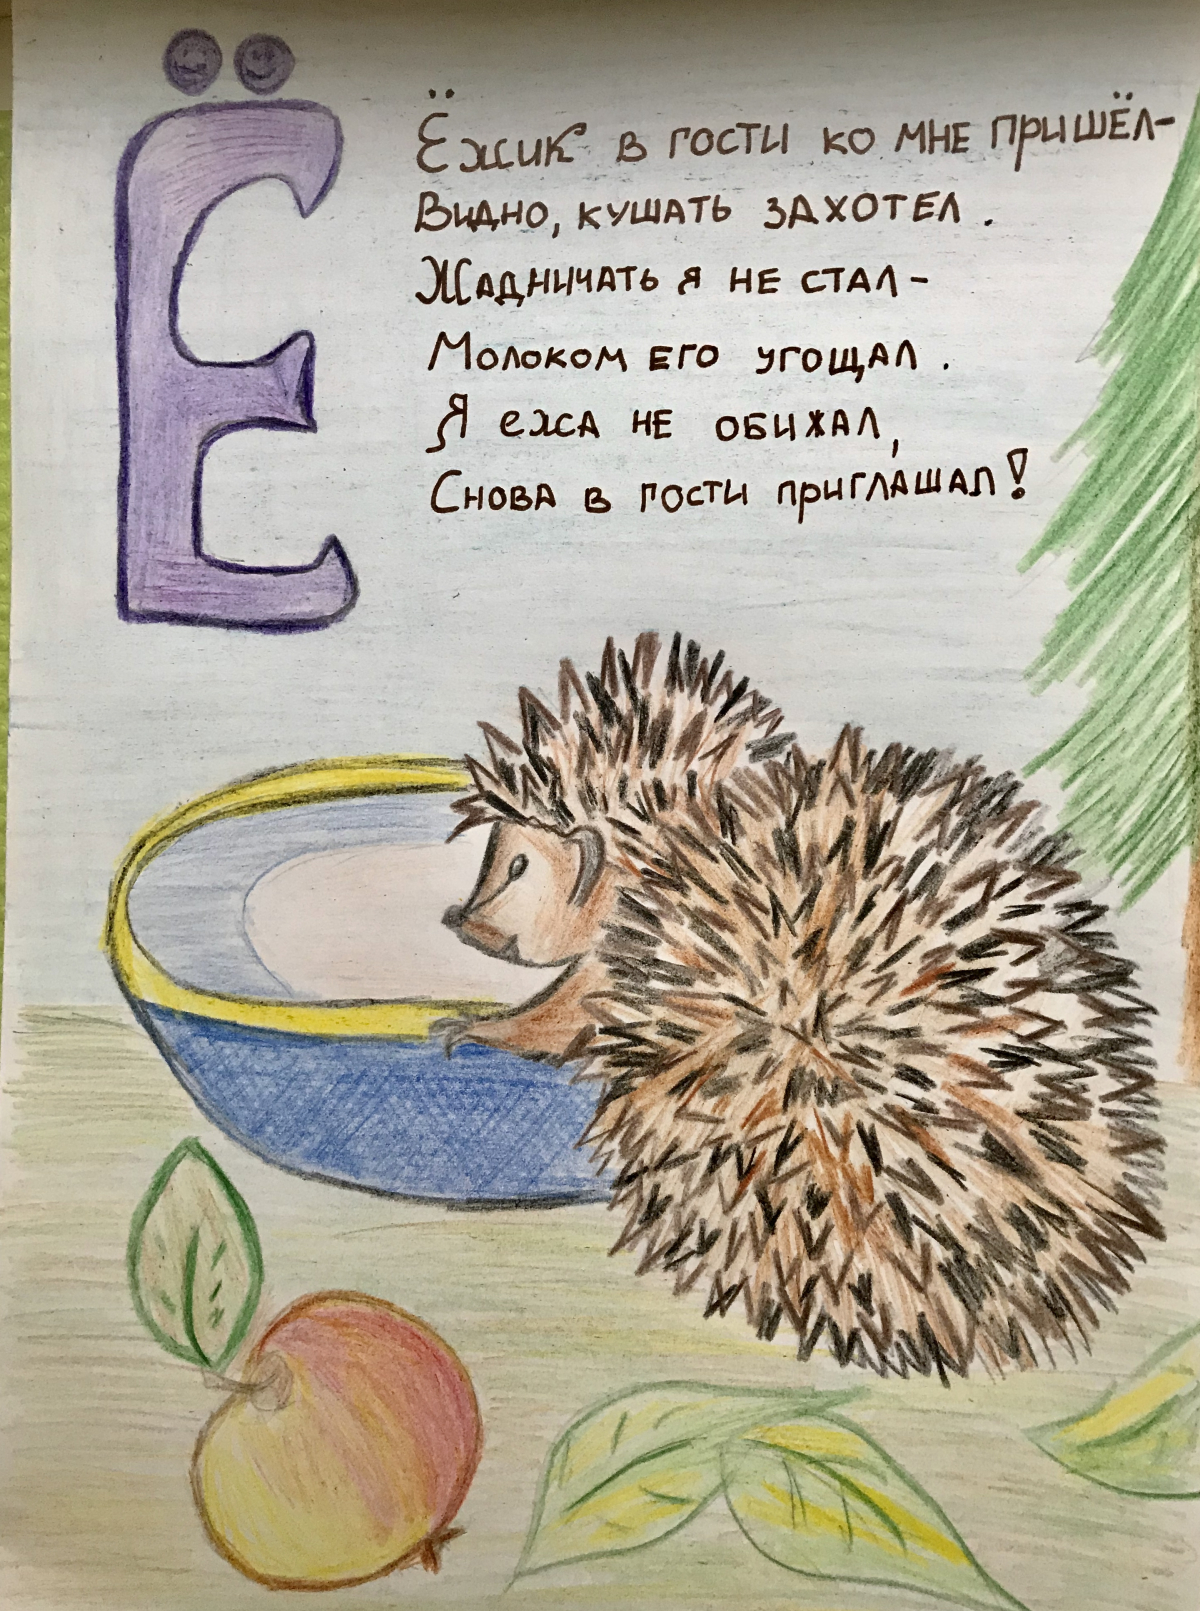 Ё
Ёжик в гости ко мне пришёл-
Видно, кушать захотел.
Жадничать я не стал-
Молоком его угощал.
Я ежа не обижал,
Снова в гости приглашал!